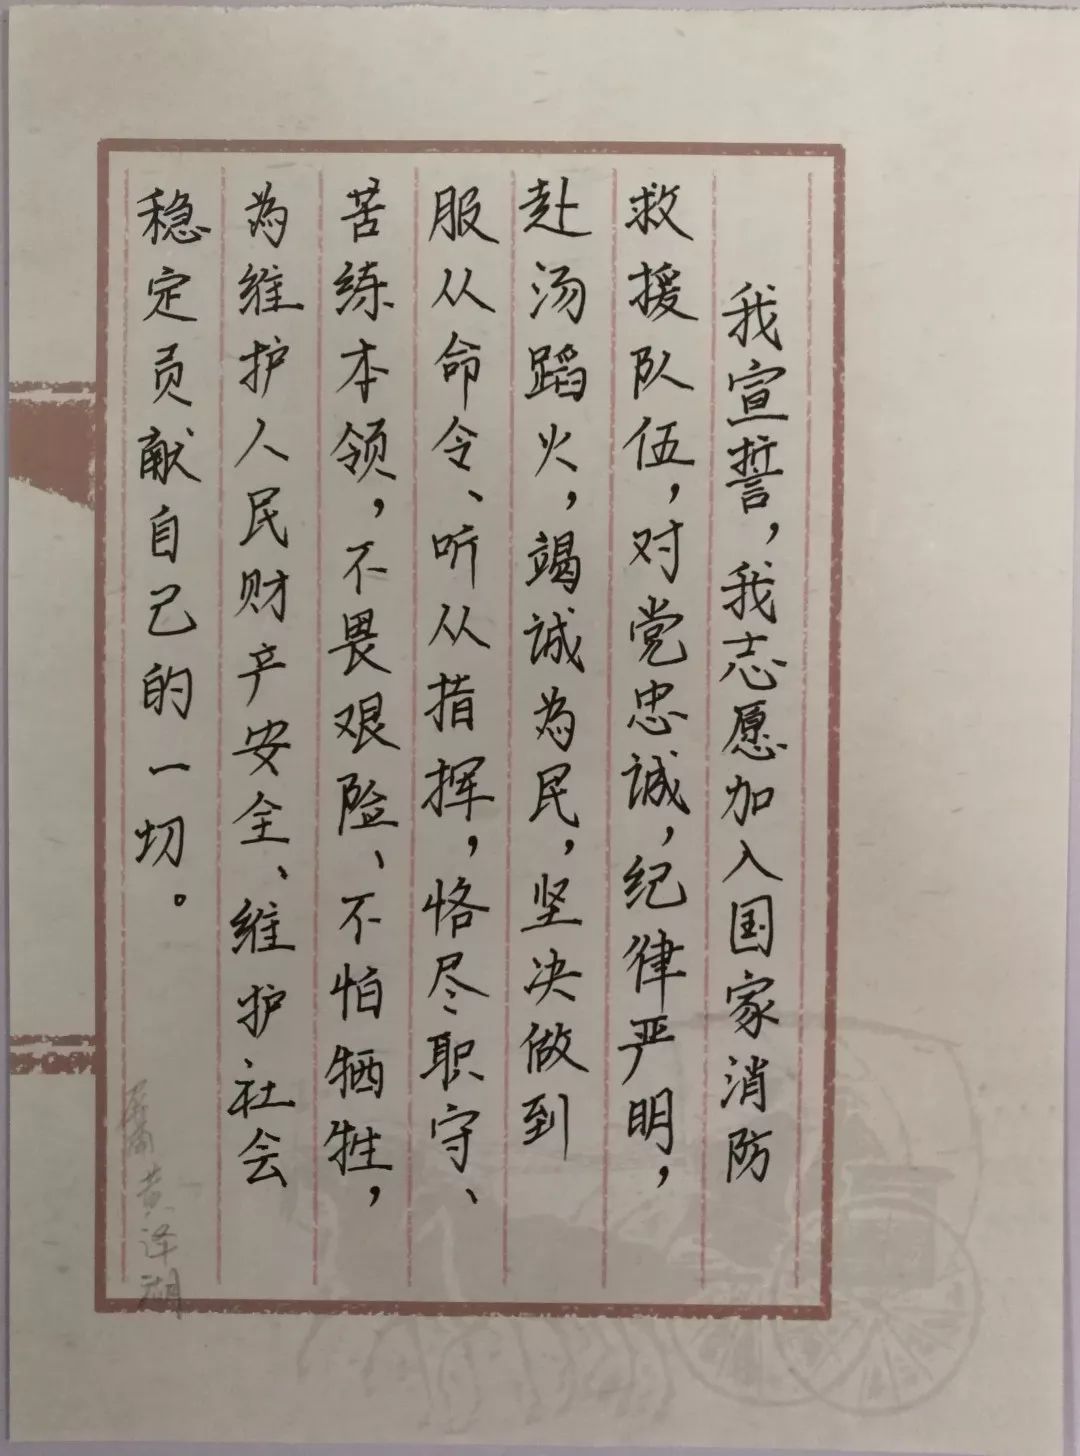 我宣誓，我志愿加入国家消防
救援队伍，对党忠诚，纪律严明，
赴汤蹈火，竭诚为民，坚决做到
服从命令、听从指挥，恪尽职守、
苦练本领，不畏艰险、不怕牺牲，
为维护人民财产安全、维护社会
稳定员献自己的一切。
黄泽湖